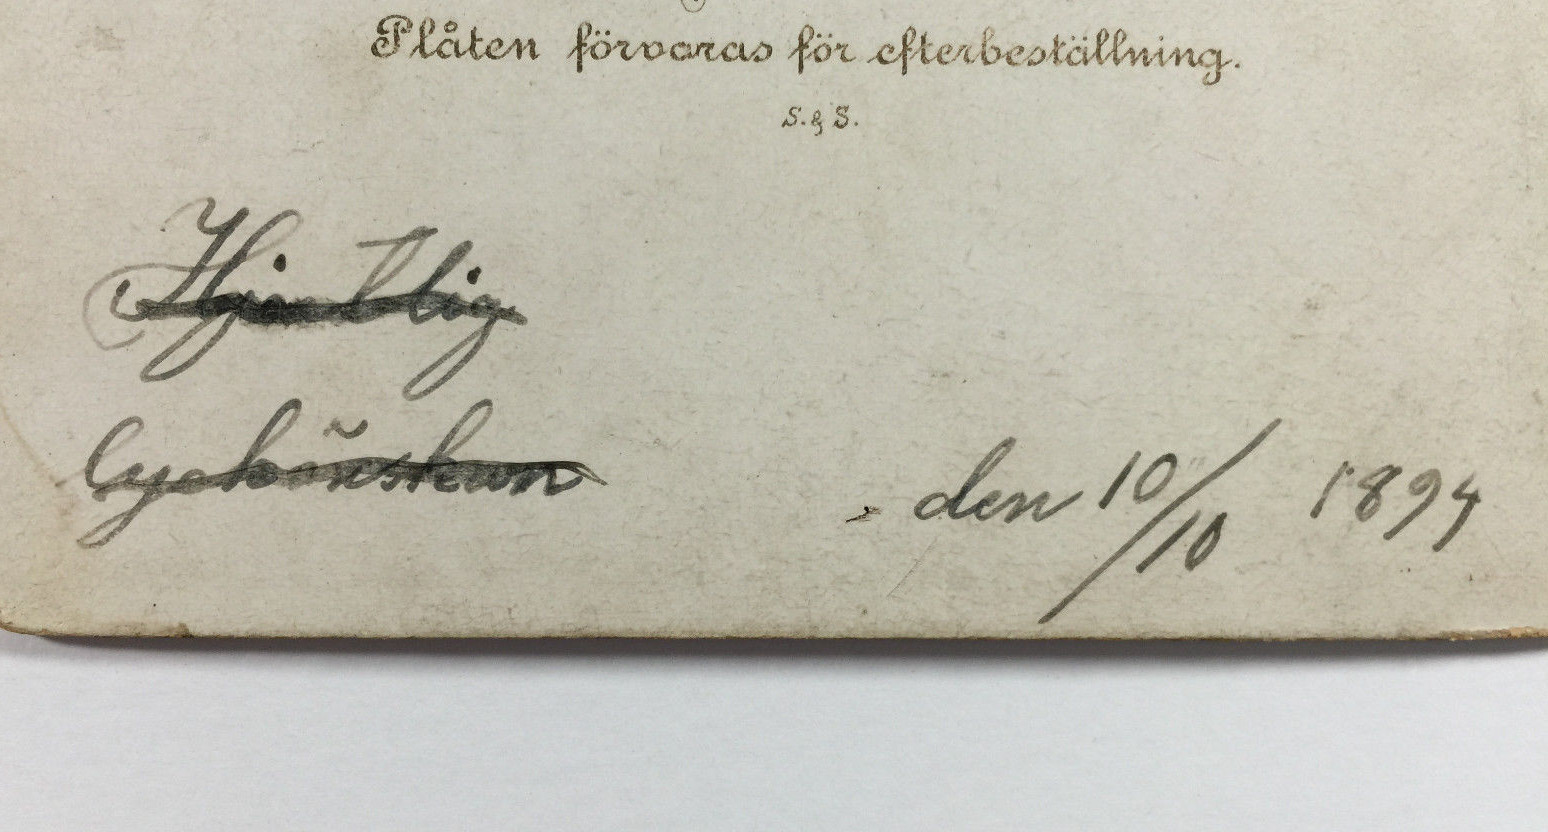 Plåten förvaras för efterbeställning.
S. & S.
Hjertlig
lyckönskan
den 10/10 1894